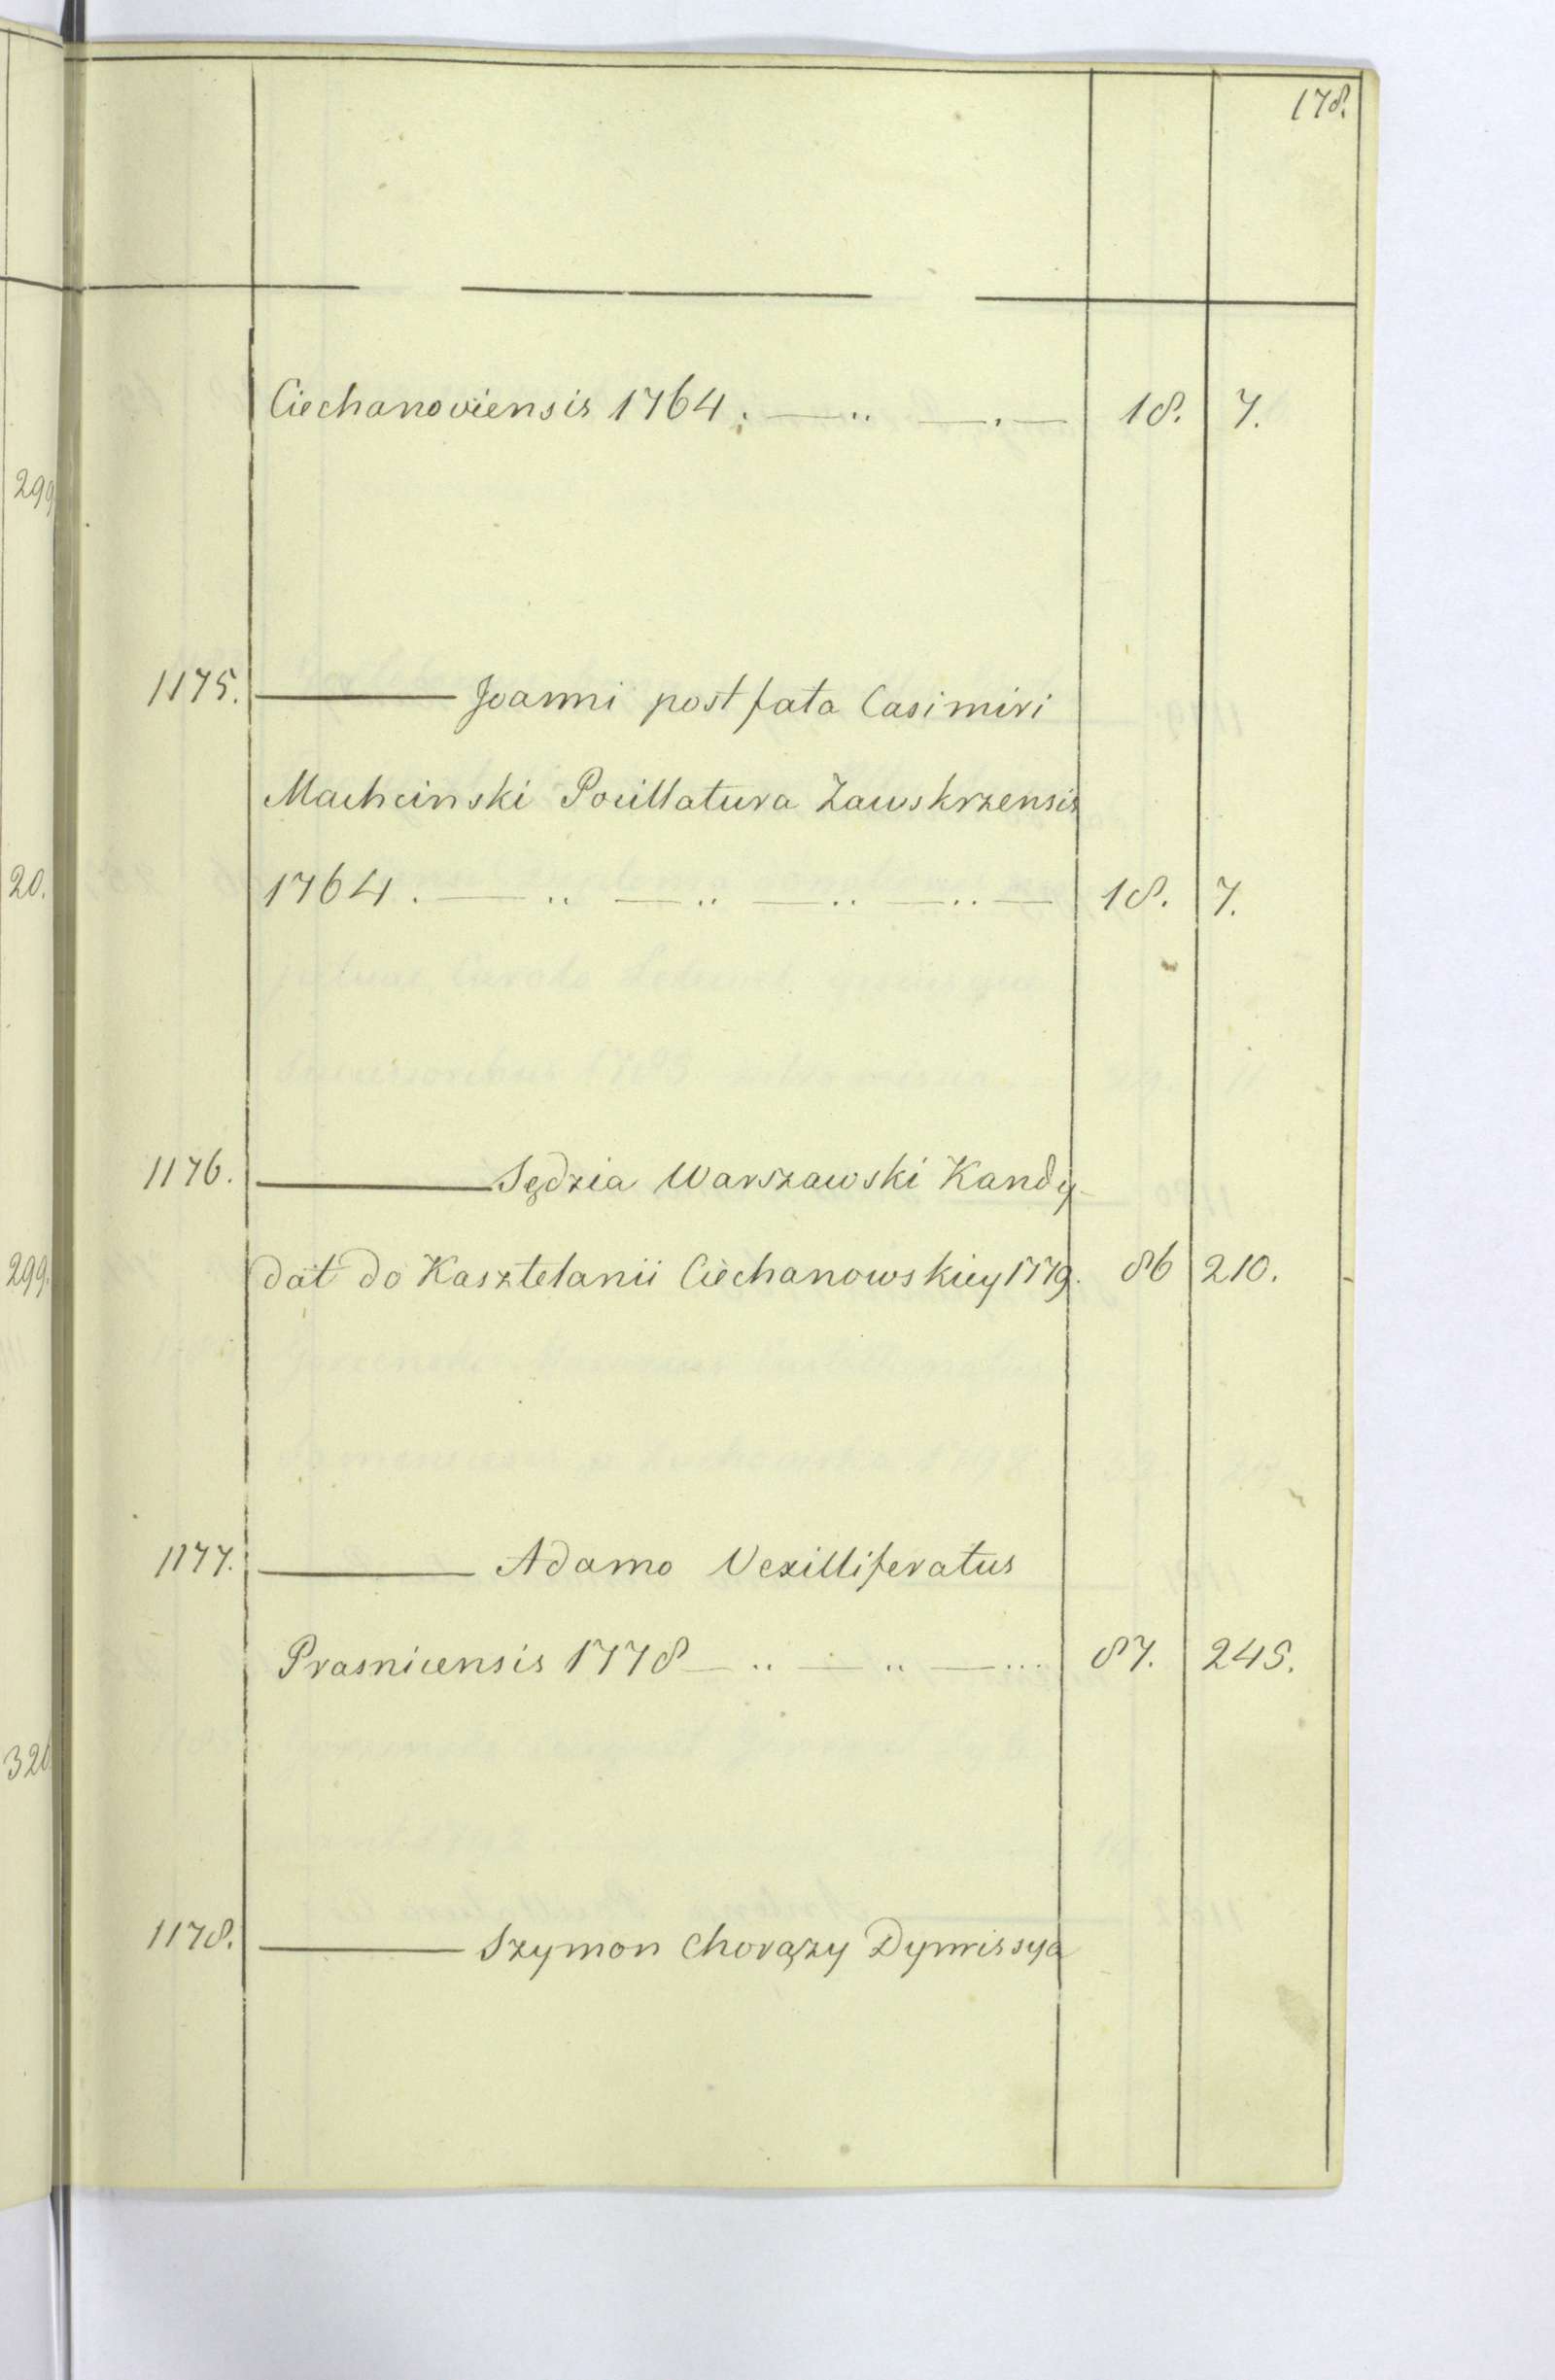 178.
Ciechanoviensis 1764. 18. 7.
299
1175. Joanni post fata Casimiri
Machcinski Pocillatura Zawskrzensis
20.
1764. 18. 7.
1176. Sędzia Warszawski Kandy-
299.
dat do Kasztelanii Ciechanowskiey 1779. 86 210.
1177. Adamo Vexilliferatus
Prasnicensis 1778 87. 245.
1178. Szymon Chorąży Dymissya